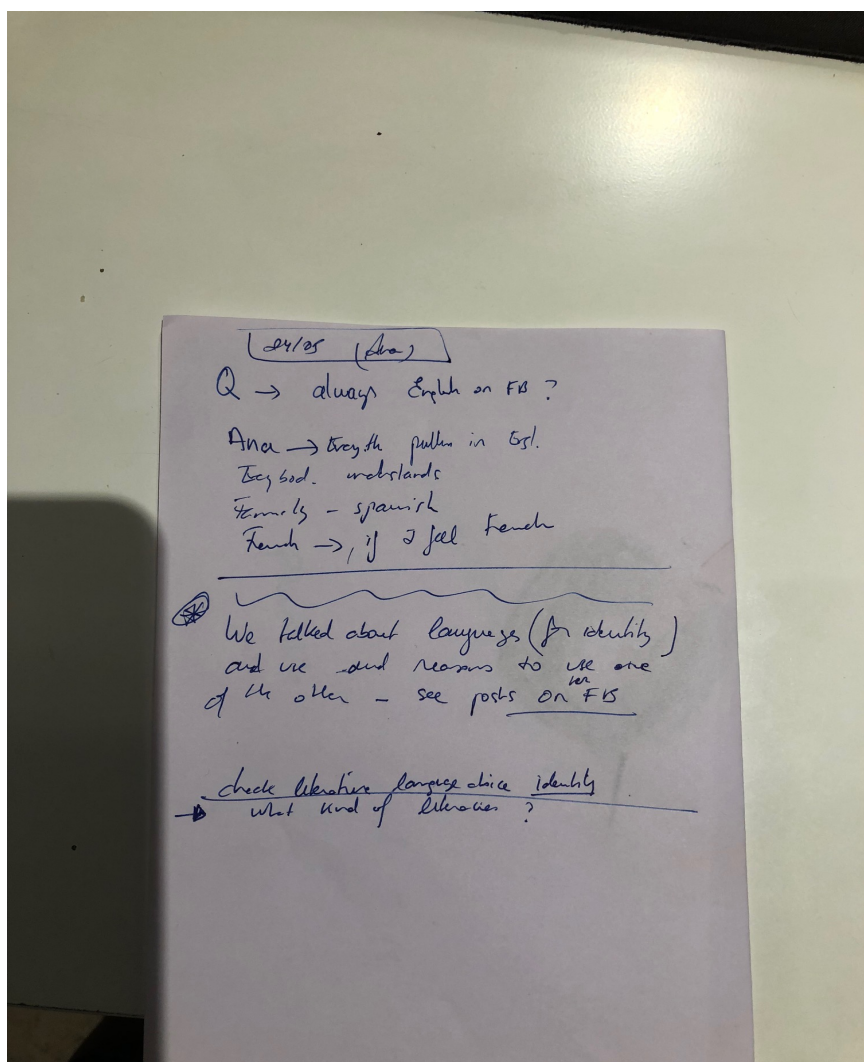 24/05 (Ana)
Q → always English on FB ?
Ana → in Engl.
understands
Family - spanish
French → , if I feel French
We talked about languages (for identity)
and use and reasons to use one
of the other - see posts on her FB
check literature language choice identity
→ what kind of literacies ?